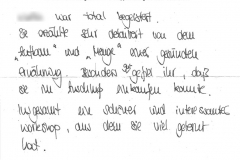 war total begeistert.
Sie erzählte sehr detailliert von dem
" und "Menge" einer gesunden
Ernährung. Besonders gefiel ihr, daß
sie im Anschluß einkaufen konnte.
Insgesamt ein schöner und interessanter
Workshop, aus dem sie viel gelernt
hat.